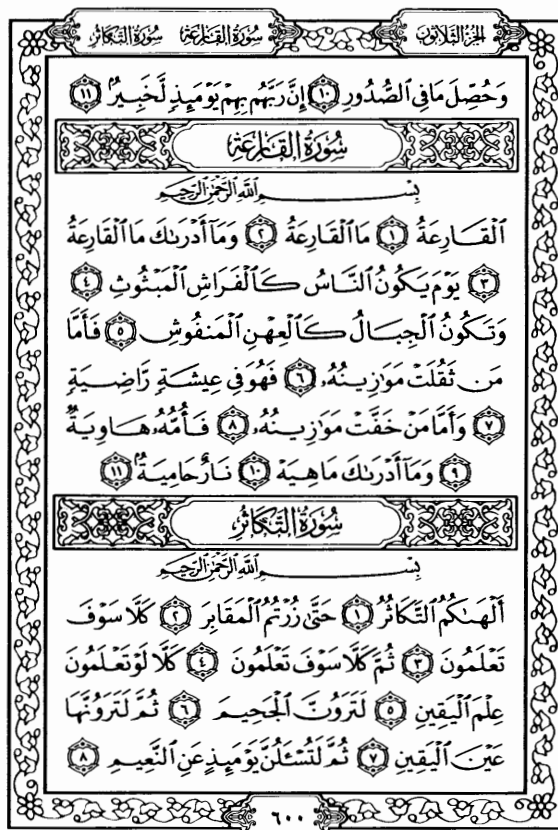 الجزء الثلاثون
سورة القارعة سورة التكاثر
وَحُصِّلَ مَا فِي ٱلصُّدُورِ ١٠ إِنَّ رَبَّهُم بِهِمْ يَوْمَئِذٍ لَّخَبِيرٌۢ ١١
سُورَةُ القَارِعَةِ
بِسْمِ ٱللَّهِ ٱلرَّحْمَٰنِ ٱلرَّحِيمِ
ٱلْقَارِعَةُ ١ مَا ٱلْقَارِعَةُ ٢ وَمَآ أَدْرَىٰكَ مَا ٱلْقَارِعَةُ
٣ يَوْمَ يَكُونُ ٱلنَّاسُ كَٱلْفَرَاشِ ٱلْمَبْثُوثِ ٤
وَتَكُونُ ٱلْجِبَالُ كَٱلْعِهْنِ ٱلْمَنفُوشِ ٥ فَأَمَّا
مَن ثَقُلَتْ مَوَٰزِينُهُۥ ٦ فَهُوَ فِي عِيشَةٍ رَّاضِيَةٍ
٧ وَأَمَّا مَنْ خَفَّتْ مَوَٰزِينُهُۥ ٨ فَأُمُّهُۥ هَاوِيَةٌ
٩ وَمَآ أَدْرَىٰكَ مَا هِيَهْ ١٠ نَارٌ حَامِيَةٌۢ ١١
سُورَةُ التَّكَاثُرِ
بِسْمِ ٱللَّهِ ٱلرَّحْمَٰنِ ٱلرَّحِيمِ
أَلْهَىٰكُمُ ٱلتَّكَاثُرُ ١ حَتَّىٰ زُرْتُمُ ٱلْمَقَابِرَ ٢ كَلَّا سَوْفَ
تَعْلَمُونَ ٣ ثُمَّ كَلَّا سَوْفَ تَعْلَمُونَ ٤ كَلَّا لَوْ تَعْلَمُونَ
عِلْمَ ٱلْيَقِينِ ٥ لَتَرَوُنَّ ٱلْجَحِيمَ ٦ ثُمَّ لَتَرَوُنَّهَا
عَيْنَ ٱلْيَقِينِ ٧ ثُمَّ لَتُسْـَٔلُنَّ يَوْمَئِذٍ عَنِ ٱلنَّعِيمِ ٨
٦٠٠